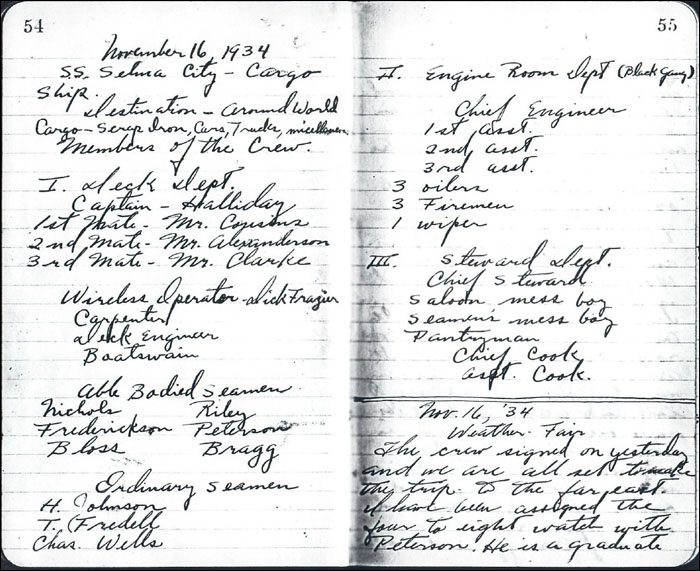 54
November 16, 1934
S.S. Selma City - Cargo
Ship.
Destination - Around World
Cargo - Scrap Iron, Cars, Trucks,
Members of the Crew.
I. Deck Dept.
Captain - Halliday
1st Mate - Mr. Cousons
2nd Mate - Mr. Alexanderson
3rd Mate - Mr. Clarke
Wireless Operator - Dick Frazier
Carpenter
Deck Engineer
Boatswain
Able Bodied Seamen
Nichols Riley
Frederickson Peterson
Bloss Bragg
Ordinary Seamen
H. Johnson
T. Fredell
Chas. Wells
55
II. Engine Room Dept (Black Gang)
Chief Engineer
1st asst.
2nd asst.
3rd asst.
3 oilers
3 Firemen
1 wiper
III. Steward Dept.
Chief Steward
Saloon mess boy
Seamen's mess boy
Pantryman
Chief Cook
Asst. Cook.
Nov. 16, '34
Weather - Fair
The crew signed on yesterday
and we are all set to make
the trip to the far east.
I have been assigned the
four to eight watch with
Peterson. He is a graduate